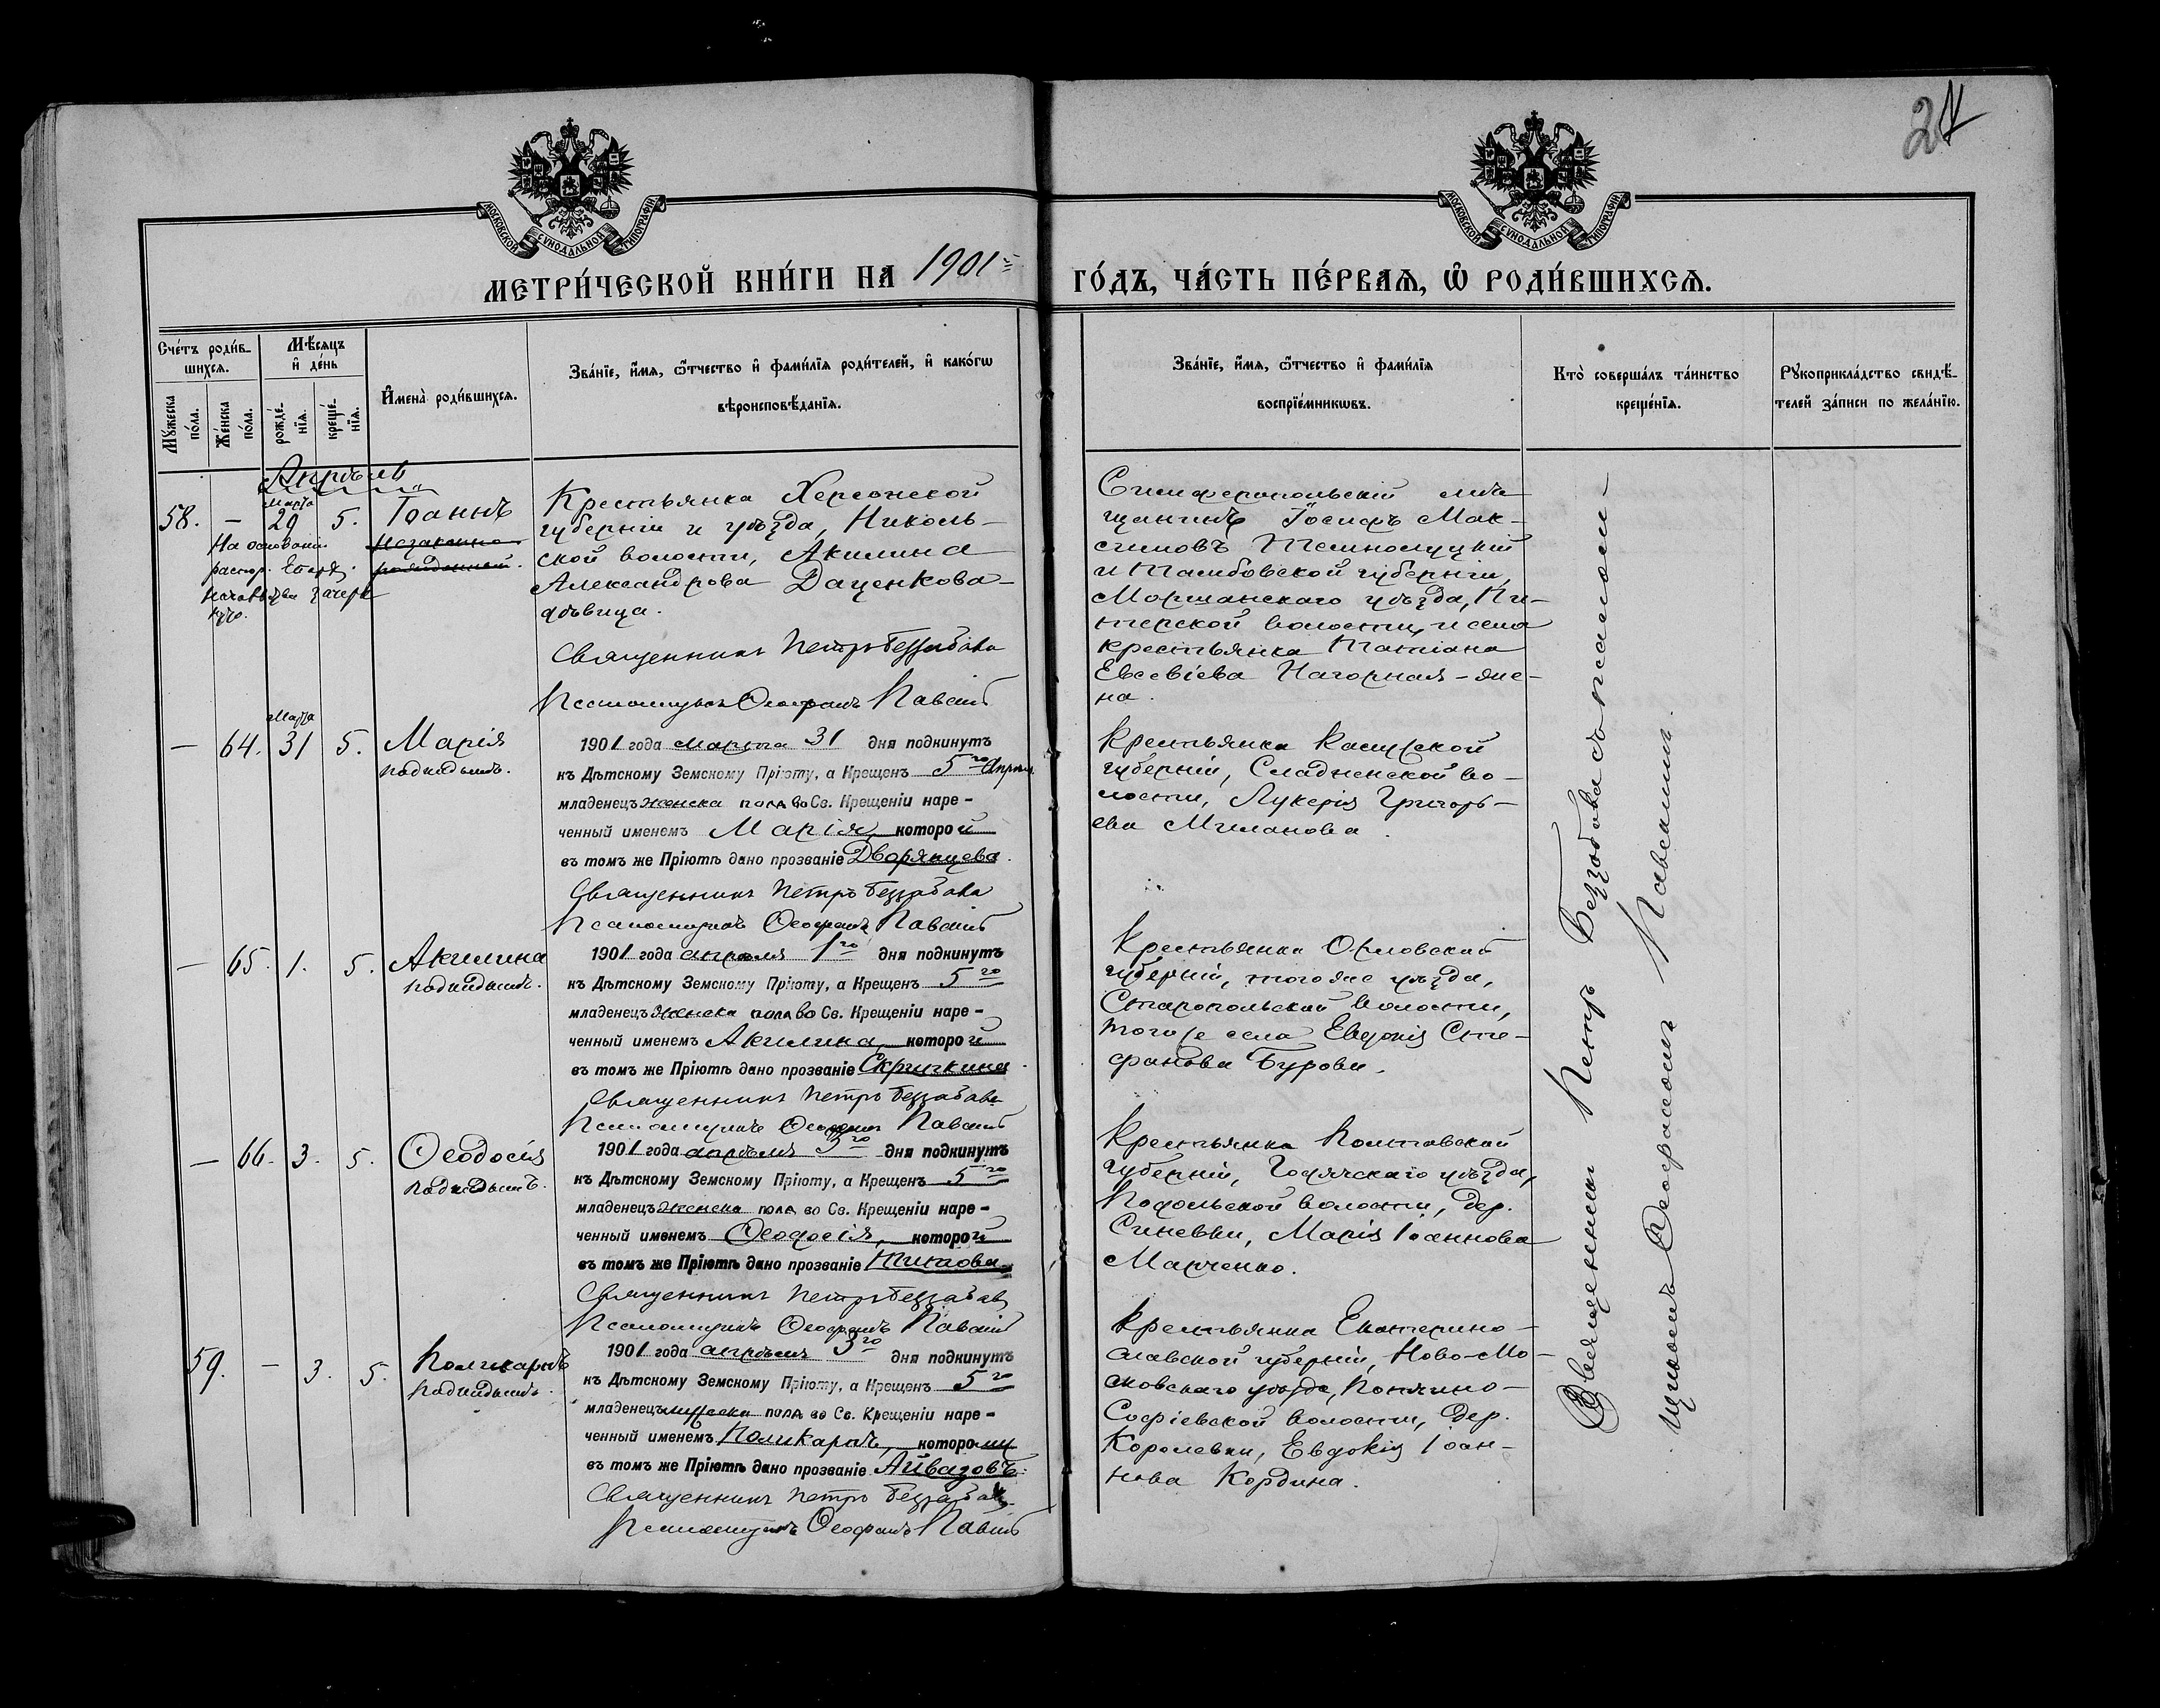 24
МОСКОВСКОЙ СѴНОДАЛЬНОЙ ТИПОГРАФІИ
МОСКОВСКОЙ СѴНОДАЛЬНОЙ ТИПОГРАФІИ
МЕТРИ́ЧЕСКОЙ КНИ́ГИ НА 1901
ГО́ДЪ, ЧА́СТЬ ПЕ́РВАЯ, Ѡ РОДИ́ВШИХСЯ.
Сче́тъ роди́в-
шихся.
Му́жеска по́ла.
Же́нска по́ла.
Мѣ́сяцъ
и҆ де́нь
рожде́-
нїя.
креще́-
нїя.
И҆мена̀ роди́вшихся.
Зва́нїе, и҆́мя, ѻ҆́тчество и҆ фами́лїя роди́телей, и҆ како́гѡ
вѣроисповѣ́данїя.
Зва́нїе, и҆́мя, ѻ҆́тчество и҆ фами́лїя
воспрїе́мникѡвъ.
Кто̀ соверша́лъ та́инство
креще́нїя.
Рꙋкоприкла́дство свидѣ́-
телей за́писи по жела́нїю.
Апрѣль
58. – Марта 29 5. Іоаннъ
Незаконно-
рожденный.
На основаніи
распор. Епарх.
Крестьянка Херсонской
губерніи и уѣзда, Николь-
ской волости, Акилина
Александрова Даценкова-
дѣвица.
Священникъ Петръ Беззабава
Псаломщикъ Ѳеофанъ Павскій
Симферопольскій мѣ-
щанинъ Іосифъ Мак-
симовъ
и Тамбовской губерніи,
Моршанскаго уѣзда, Пи-
терской волости и села
крестьянка Татіана
Евсевіева Нагорная-же-
на.
– 64. Марта 31 5. Марія
подкидышъ.
1901 года марта 31 дня подкинутъ
къ Дѣтскому Земскому Пріюту, а Крещенъ 5го Апрѣл.
младенецъ женска пола во Св. Крещеніи наре-
ченный именемъ Марія, которой
въ томъ же Пріютѣ дано прозваніе Дворянцева.
Священникъ Петръ Беззабава
Псаломщикъ Ѳеофанъ Павскій
Крестьянка
губерніи, во-
лости, Лукерія Григорь-
ева Миланова.
– 65. 1. 5. Акилина
подкидышъ.
1901 года апрѣля 1го дня подкинутъ
къ Дѣтскому Земскому Пріюту, а Крещенъ 5го
младенецъ женска пола во Св. Крещеніи наре-
ченный именемъ Акилина, которой
въ томъ же Пріютѣ дано прозваніе Скрипкина
Священникъ Петръ Беззабава
Псаломщикъ Ѳеофанъ Павскій
Крестьянка Орловской
губерніи, того же уѣзда,
Старопольской волости,
того же села Евдокія Сте-
фанова Бурова.
– 66. 3. 5. Ѳеодосія
подкидышъ.
1901 года апрѣля 3го дня подкинутъ
къ Дѣтскому Земскому Пріюту, а Крещенъ 5го
младенецъ женска пола во Св. Крещеніи наре-
ченный именемъ Ѳеодосія, которой
въ томъ же Пріютѣ дано прозваніе Титова.
Священникъ Петръ Беззабава
Псаломщикъ Ѳеофанъ Павскій
Крестьянка Полтавской
губерніи, Гадячскаго уѣзда,
волости, дер.
Синевки, Марія Іоаннова
Марченко.
59. – 3. 5. Поликарпъ
подкидышъ.
1901 года апрѣля 3го дня подкинутъ
къ Дѣтскому Земскому Пріюту, а Крещенъ 5го
младенецъ мужеска пола во Св. Крещеніи наре-
ченный именемъ Поликарпъ, которому
въ томъ же Пріютѣ дано прозваніе Айвазовъ.
Священникъ Петръ Беззабава
Псаломщикъ Ѳеофанъ Павскій
Крестьянка Екатерино-
славской губерніи, Ново-Мо-
сковскаго уѣзда,
Софіевской волости, дер.
Королевки, Евдокія Іоан-
нова Кордина.
Священникъ Петръ Беззабава съ псалом-
щикомъ Ѳеофаномъ Павскимъ.